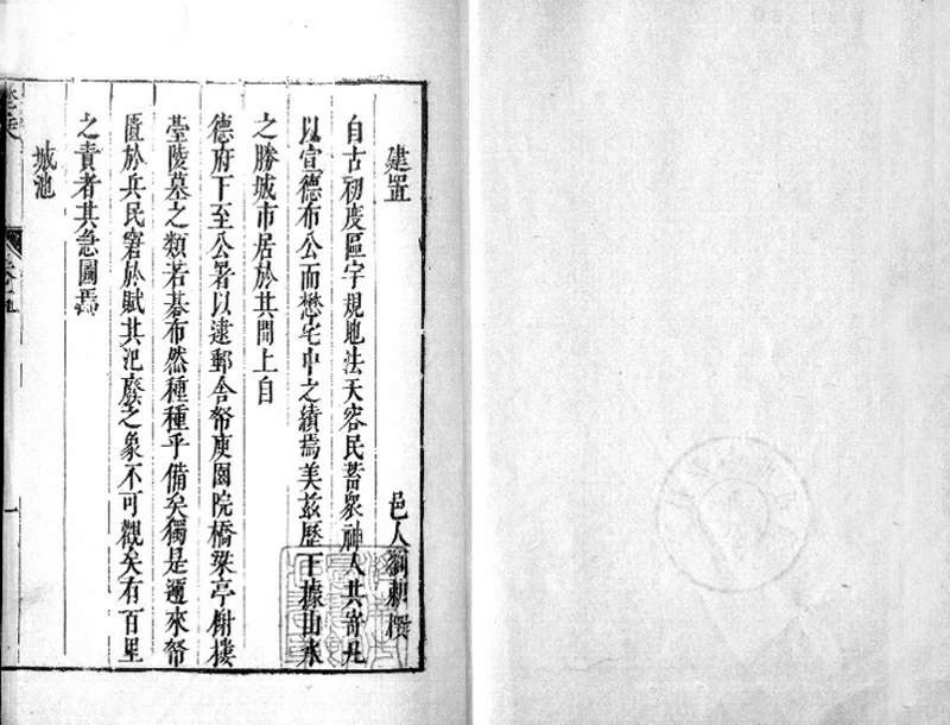 建置
邑人劉勑撰
自古初度區宇規地法天容民蓄衆神人共寄凡
以宣德布公而懋宅中之績焉美茲歷下據山水
之勝城市居於其間上自
德府下至公署以逮郵舍帑庾園院橋梁亭榭樓
臺陵墓之類若碁布然種種乎備矣獨是邇來帑
匱於兵民窘於賦其圮廢之象不可觀矣有百里
之責者其急圖焉
城池
一